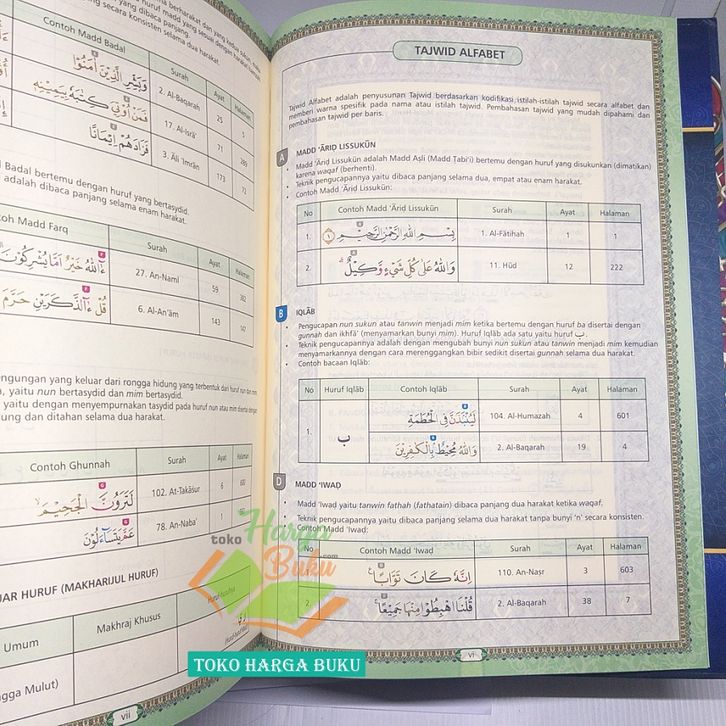 TAJWID ALFABET
Tajwid Alfabet adalah penyusunan Tajwid berdasarkan kodifikasi istilah-istilah tajwid secara alfabet dan
memberi warna spesifik pada nama atau istilah tajwid. Pembahasan tajwid yang mudah dipahami dan
pembahasan tajwid per baris.
A MADD 'ĀRIḌ LISSUKŪN
Madd 'Āriḍ Lissukūn adalah Madd Aṣli (Madd Ṭabi'i) bertemu dengan huruf yang disukunkan (dimatikan)
karena waqaf (berhenti).
Teknik pengucapannya yaitu dibaca panjang selama dua, empat atau enam harakat.
Contoh Madd 'Āriḍ Lissukūn:
No Contoh Madd 'Āriḍ Lissukūn Surah Ayat Halaman
1. بِسْمِ اللهِ الرَّحْمٰنِ الرَّحِيْمِ ١ 1. Al-Fātiḥah 1 1
2. وَاللهُ عَلٰى كُلِّ شَيْءٍ وَّكِيْلٌ 11. Hūd 12 222
B IQLĀB
Pengucapan nun sukun atau tanwin menjadi mim ketika bertemu dengan huruf ba disertai dengan
gunnah dan ikhfā' (menyamarkan bunyi mim). Huruf Iqlāb ada satu yaitu huruf ب.
Teknik pengucapannya adalah dengan mengubah bunyi nun sukun atau tanwin menjadi mim kemudian
menyamarkannya dengan cara merenggangkan bibir sedikit disertai gunnah selama dua harakat.
Contoh bacaan Iqlāb:
No Huruf Iqlāb Contoh Iqlāb Surah Ayat Halaman
1. ب لَيُنْۢبَذَنَّ فِى الْحُطَمَةِ 104. Al-Humazah 4 601
وَاللهُ مُحِيْطٌۢ بِالْكٰفِرِيْنَ 2. Al-Baqarah 19 4
D MADD 'IWAḌ
Madd 'Iwaḍ yaitu tanwin fathah (fathatain) dibaca panjang dua harakat ketika waqaf.
Teknik pengucapannya yaitu dibaca panjang selama dua harakat tanpa bunyi 'n' secara konsisten.
Contoh Madd 'Iwaḍ:
No Contoh Madd 'Iwaḍ Surah Ayat Halaman
اِنَّهٗ كَانَ تَوَّابًا 110. An-Nasr 3 603
2. قُلْنَا اهْبِطُوْا مِنْهَا جَمِيْعًا 2. Al-Baqarah 38 7
vi
Contoh Madd Badal Surah Ayat Halaman
وَبَشِّرِ الَّذِيْنَ اٰمَنُوْا 2. Al-Baqarah 25 5
فَمَنْ اُوْتِيَ كِتٰبَهٗ بِيَمِيْنِهٖ 17. Al-Isrā' 71 289
فَزَادَهُمْ اِيْمَانًا 3. Āli 'Imrān 173 72
Badal bertemu dengan huruf yang bertasydid.
adalah dibaca panjang selama enam harakat.
Madd Farq Surah Ayat Halaman
اٰۤللهُ خَيْرٌ اَمَّا يُشْرِكُوْنَ 27. An-Naml 59 382
قُلْ اٰۤلذَّكَرَيْنِ حَرَّمَ 6. Al-An'ām 143 147
ngungan yang keluar dari rongga hidung yang terbentuk dari huruf nun dan mim
, yaitu nun bertasydid dan mim bertasydid.
yaitu dengan menyempurnakan tasydid pada huruf nun atau mim disertai dengan
ung dan ditahan selama dua harakat.
Contoh Ghunnah Surah Ayat Halaman
لَتَرَوُنَّ الْجَحِيْمَ 102. At-Takāsur 6 600
عَمَّ يَتَسَاۤءَلُوْنَ 78. An-Naba' 1
UAR HURUF (MAKHARIJUL HURUF)
Umum Makhraj Khusus
ngga Mulut)
vii
toko Harga Buku .com
TOKO HARGA BUKU